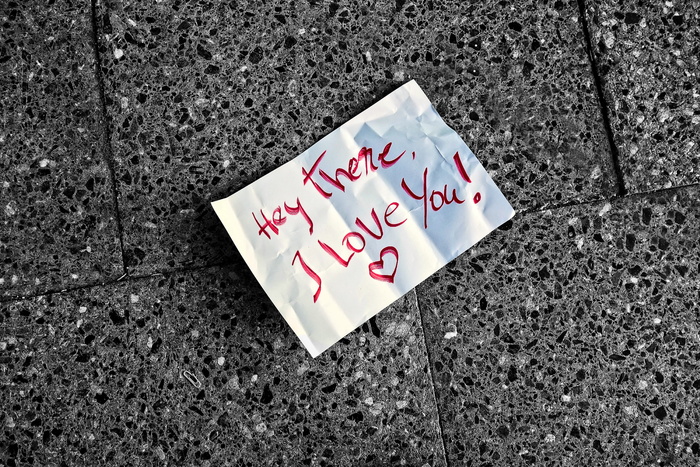 Hey there,
I Love You!